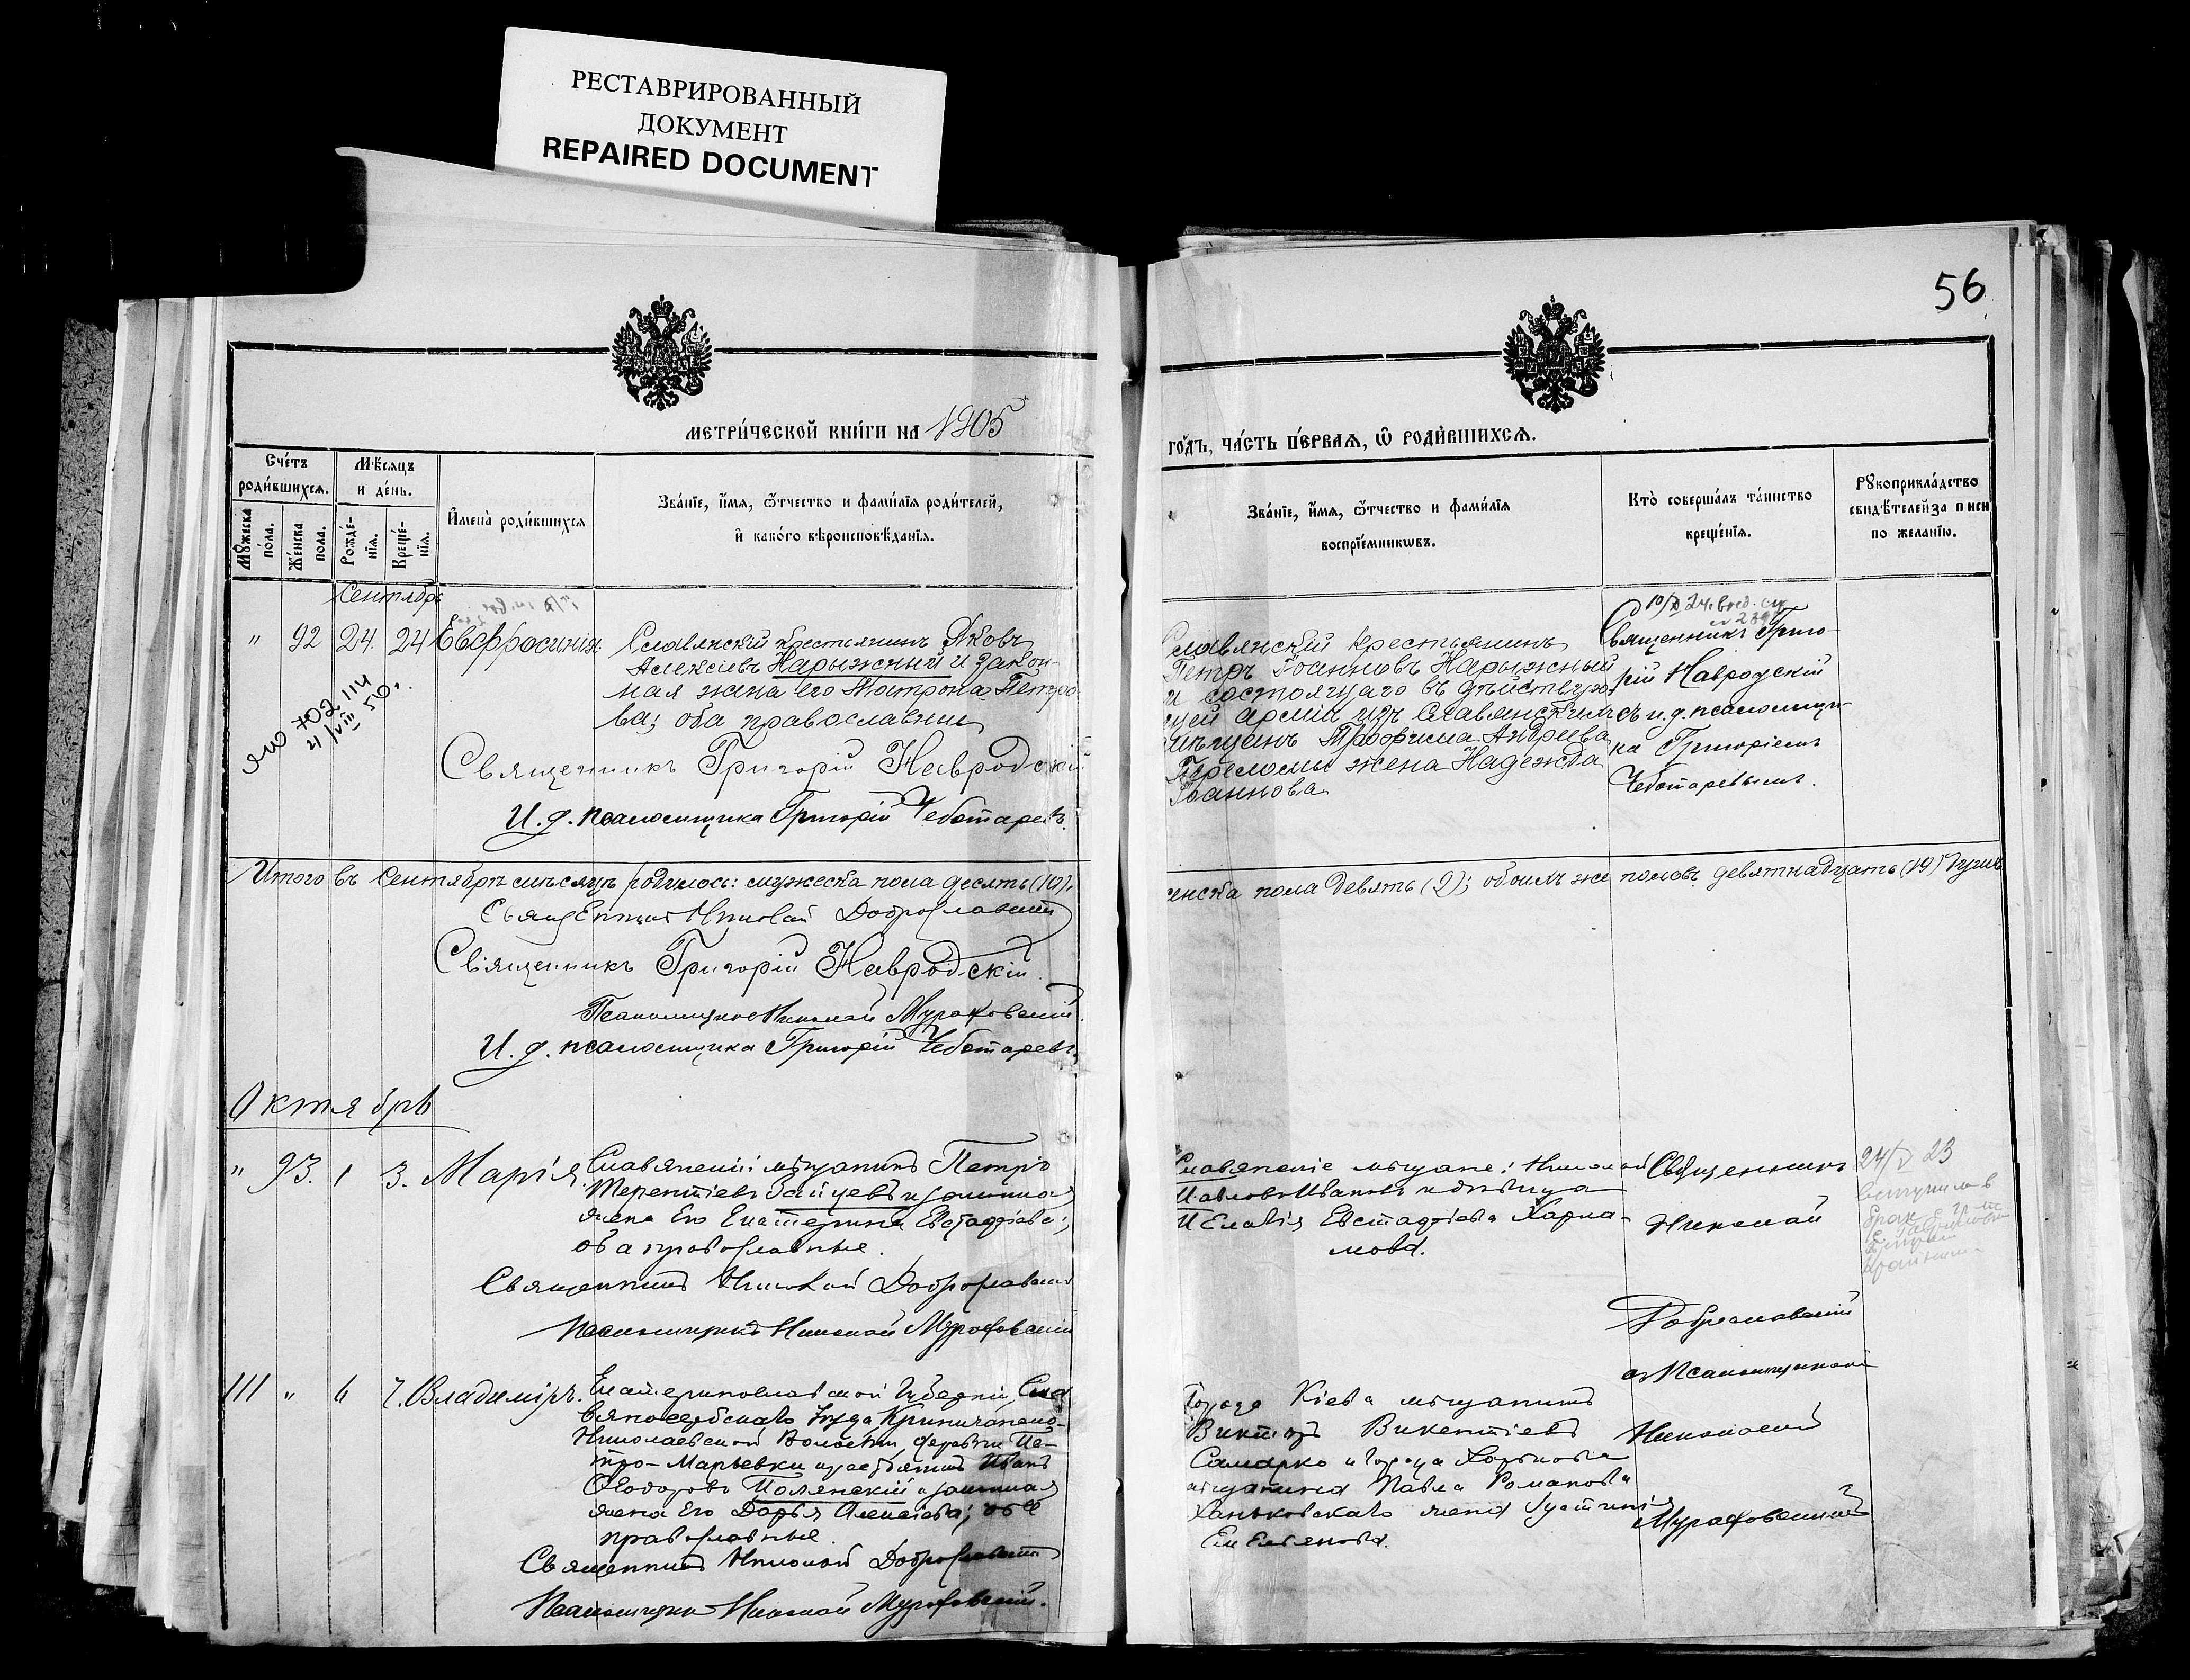 РЕСТАВРИРОВАННЫЙ
ДОКУМЕНТ
REPAIRED DOCUMENT
56
МЕТРИ́ЧЕСКОЙ КНИ́ГИ НА 1905
ГО́ДЪ, ЧА́СТЬ ПЕ́РВАѦ, Ѿ РОДИ́ВШИХСѦ.
Сче́тъ
роди́вшихсѧ.
Мѣ́сѧцъ
и де́нь.
Мꙋ́жска
по́ла.
Же́нска
по́ла.
Рожде́-
нїѧ.
Креще́-
нїѧ.
И҆мена̀ роди́вшихсѧ
Зва́нїе, и҆́мѧ, ѻ҆́тчество и фами́лїѧ роди́телей,
и҆ како́гѡ вѣроисповѣ́данїѧ.
Зва́нїе, и҆́мѧ, ѻ҆́тчество и фами́лїѧ
воспрїе́мникѡвъ.
Кто̀ соверша́лъ та́инство
креще́нїѧ.
Рꙋкоприкла́дство
свидѣ́телей за писи
по жела́нїю.
Сентябрь
" 92 24. 24 Евфросинія.
Славянскій крестьянинъ Яковъ
Алексіевъ Нарыжный и закон-
ная жена его Матрона Петро
ва; оба православные
Священникъ Григорій Навродскій
И. д. псаломщика Григорій Чеботаревъ.
702114
21/VIII 50
Славянскій крестьянинъ
Петръ Іоанновъ Нарыжный
и состоящаго въ дѣйствую
щей арміи изъ Славянскихъ
мѣщанъ Трофима Андреева
жена Надежда
Іоаннова
Священникъ Григо-
рій Навродскій
съ и. д. псаломщи-
ка Григоріемъ
Чеботаревымъ.
Итого въ Сентябрѣ мѣсяцѣ родилось: мужеска пола десять (10),
женска пола девять (9); обоихъ же половъ девятнадцать (19) душъ
Священникъ Николай Доброславскій
Священникъ Григорій Навродскій.
Псаломщикъ Николай Мураховскій.
И. д. псаломщика Григорій Чеботаревъ.
Октябрь
" 93. 1 3. Марія.
Славянскій мѣщанинъ Петръ
Терентіевъ Зайцевъ и законная
жена его Екатерина Евстафіева;
оба православные.
Священникъ Николай Доброславскій
Псаломщикъ Николай Мураховскій
Славянскіе мѣщане: Николай
Павловъ Ивановъ и дѣвица
Пелагія Евстафіева Харла-
мова.
Священникъ
Николай
Доброславскій
съ Псаломщикомъ
Николаемъ
Мураховскимъ
23
вступила в
брак с
111 " 6 7. Владиміръ.
Екатеринославской Губерніи, Сла
вяносербскаго Уѣзда Криничанско-
Николаевской Волости, деревни Пе-
тро-Марьевки крестьянинъ Иванъ
Ѳеодоровъ Полянскій и законная
жена его Дарья Алексіева; оба
православные.
Священникъ Николай Доброславскій
Псаломщикъ Николай Мураховскій.
Города Кіева мѣщанинъ
Викторъ Викентіевъ
и города Харькова
мѣщанина Павла Романова
Ханьковскаго жена Іустинія
Емельянова.